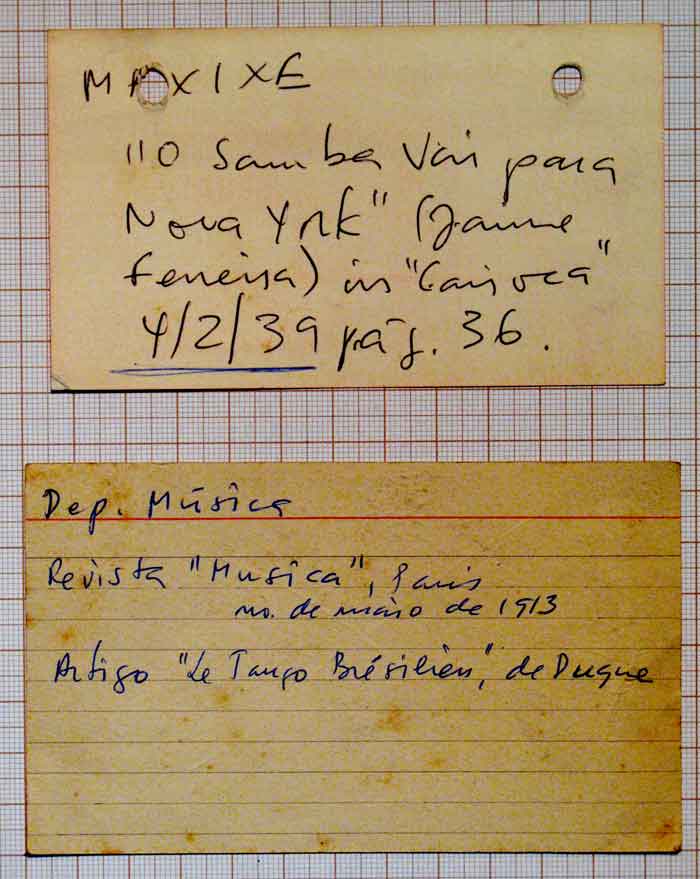 MAXIXE
"O Samba Vai para
Nova York" (Jaime
Ferreira) in "Carioca"
4/2/39 pág. 36.
Dep. Música
Revista "Musica", Paris
no. de maio de 1913
Artigo "Le Tango Brésilien", de Duque